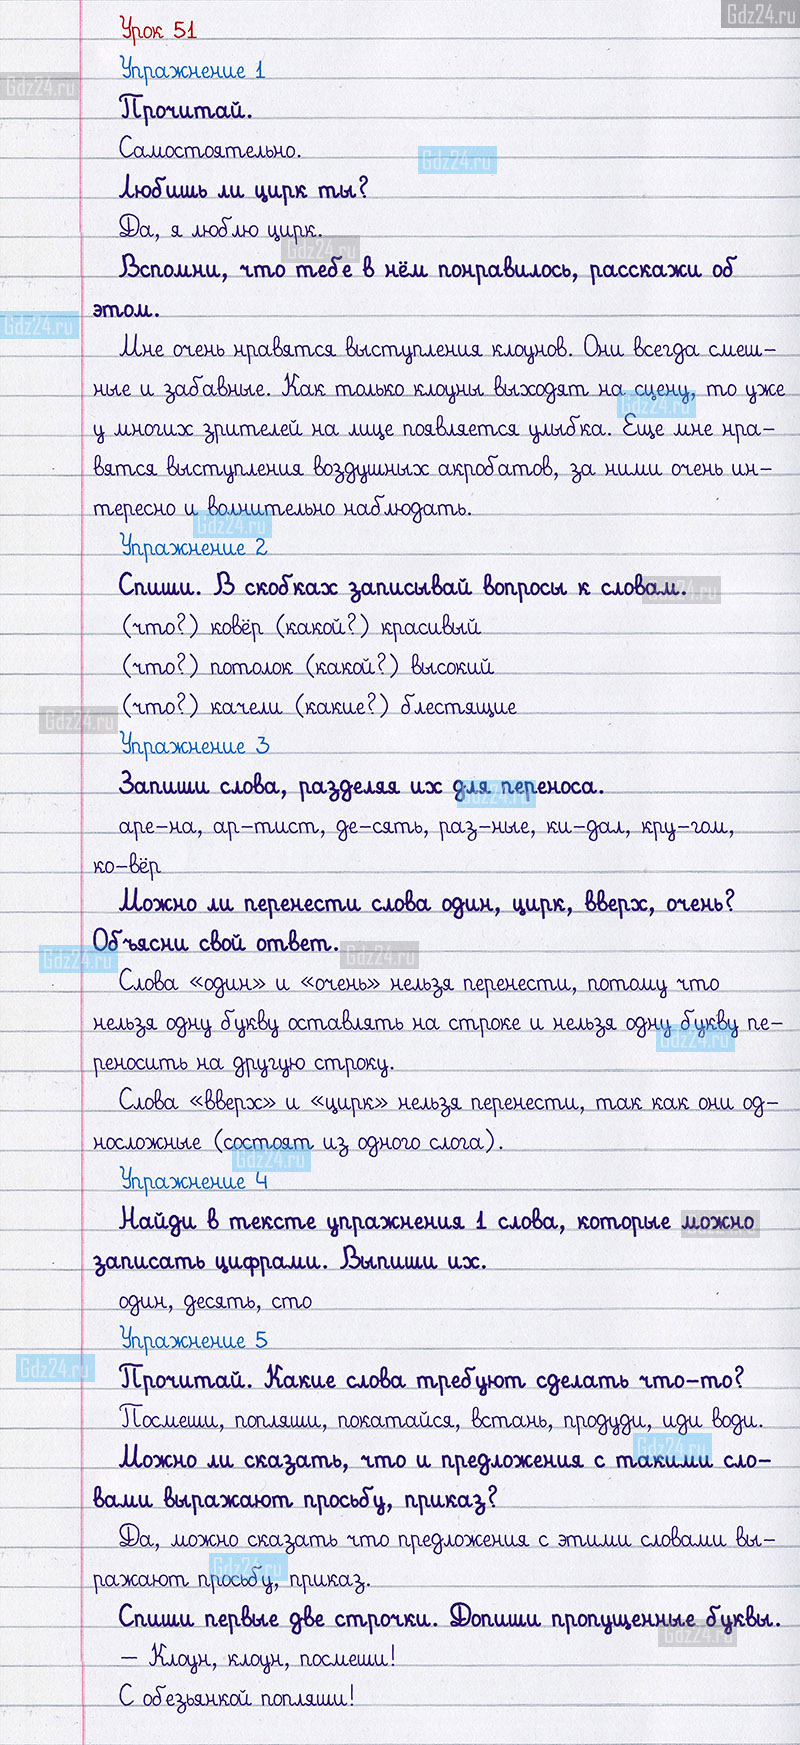 Gdz24.ru
Урок 51
Упражнение 1
Gdz24.ru
Прочитай.
Самостоятельно.
Gdz24.ru
Любишь ли цирк ты?
Да, я люблю цирк.
Gdz24.ru
Вспомни, что тебе в нём понравилось, расскажи об
этом.
Gdz24.ru
Мне очень нравятся выступления клоунов. Они всегда смеш-
ные и забавные. Как только клоуны выходят на сцену, то уже
Gdz24.ru
у многих зрителей на лице появляется улыбка. Еще мне нра-
вятся выступления воздушных акробатов, за ними очень ин-
тересно и волнительно наблюдать.
Gdz24.ru
Упражнение 2
Спиши. В скобках записывай вопросы к словам.
Gdz24.ru
(что?) ковёр (какой?) красивый
(что?) потолок (какой?) высокий
(что?) качели (какие?) блестящие
Gdz24.ru
Упражнение 3
Запиши слова, разделяя их для переноса.
Gdz24.ru
аре-на, ар-тист, де-сять, раз-ные, ки-дал, кру-гом,
ко-вёр
Можно ли перенести слова один, цирк, вверх, очень?
Объясни свой ответ.
Gdz24.ru
Gdz24.ru
Слова «один» и «очень» нельзя перенести, потому что
нельзя одну букву оставлять на строке и нельзя одну букву пе-
Gdz24.ru
реносить на другую строку.
Слова «вверх» и «цирк» нельзя перенести, так как они од-
носложные (состоят из одного слога).
Gdz24.ru
Упражнение 4
Найди в тексте упражнения 1 слова, которые можно
Gdz24.ru
записать цифрами. Выпиши их.
один, десять, сто
Упражнение 5
Gdz24.ru
Прочитай. Какие слова требуют сделать что-то?
Посмеши, попляши, покатайся, встань, продуди, иди води.
Gdz24.ru
Можно ли сказать, что и предложения с такими сло-
вами выражают просьбу, приказ?
Да, можно сказать что предложения с этими словами вы-
Gdz24.ru
ражают просьбу, приказ.
Спиши первые две строчки. Допиши пропущенные буквы.
Gdz24.ru
– Клоун, клоун, посмеши!
С обезьянкой попляши!